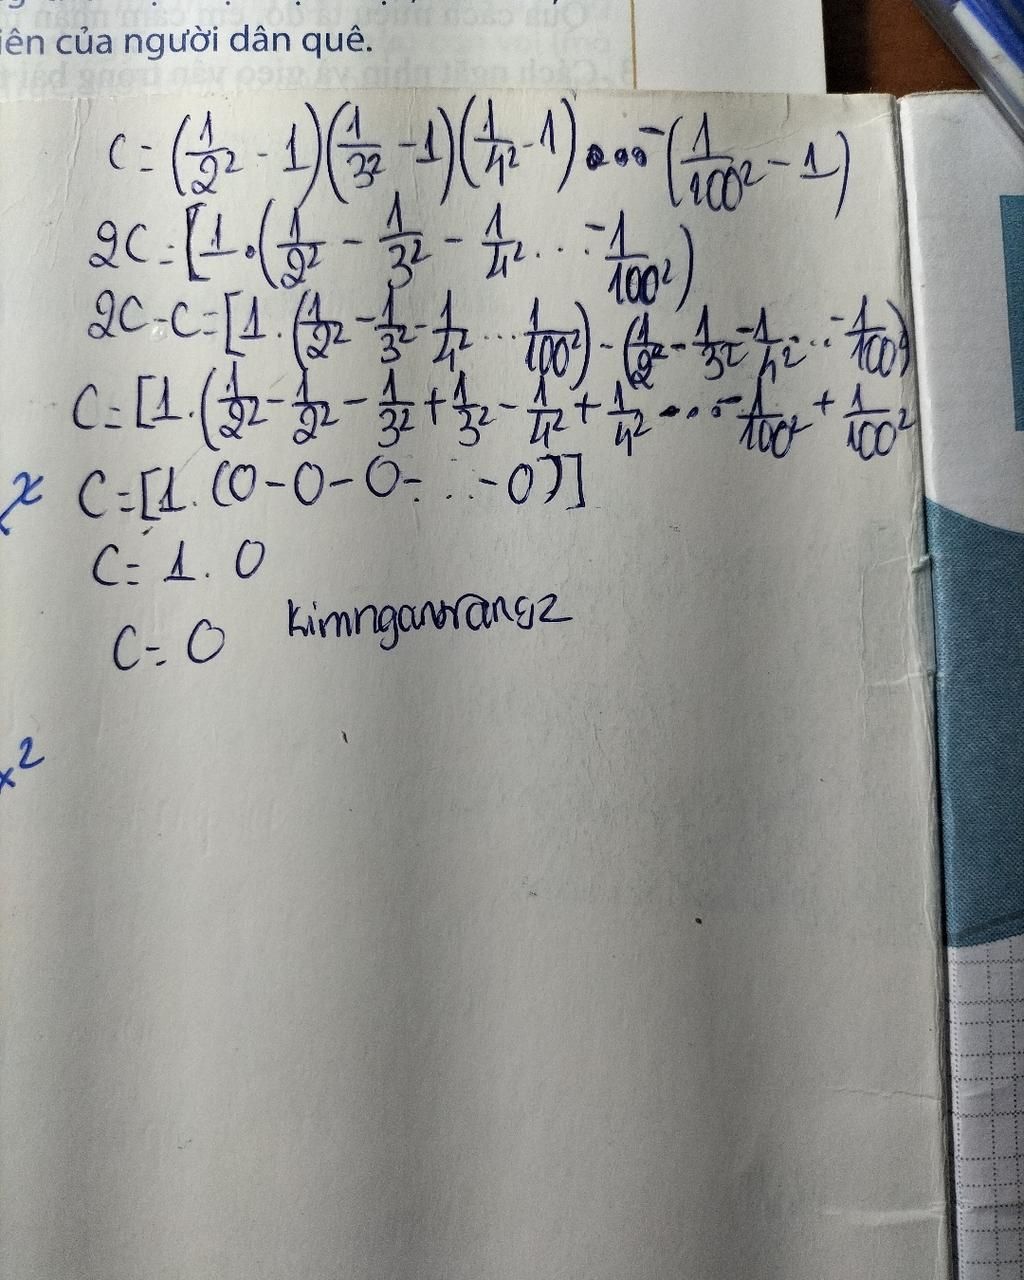 iên của người dân quê.
C = (1/2² - 1)(1/3² - 1)(1/4² - 1)...-(1/100² - 1)
2C = [1.(1/2² - 1/3² - 1/4² ... - 1/100²)
2C - C = [1.(1/2² - 1/3² - 1/4² ... 1/100²) - (1/2² - 1/3² - 1/4² ... - 1/100²)
C = [1.(1/2² - 1/2² - 1/3² + 1/3² - 1/4² + 1/4² ... - 1/100² + 1/100²
x
C = [1.(0-0-0-...-0)]
C = 1.0
C = 0
x²